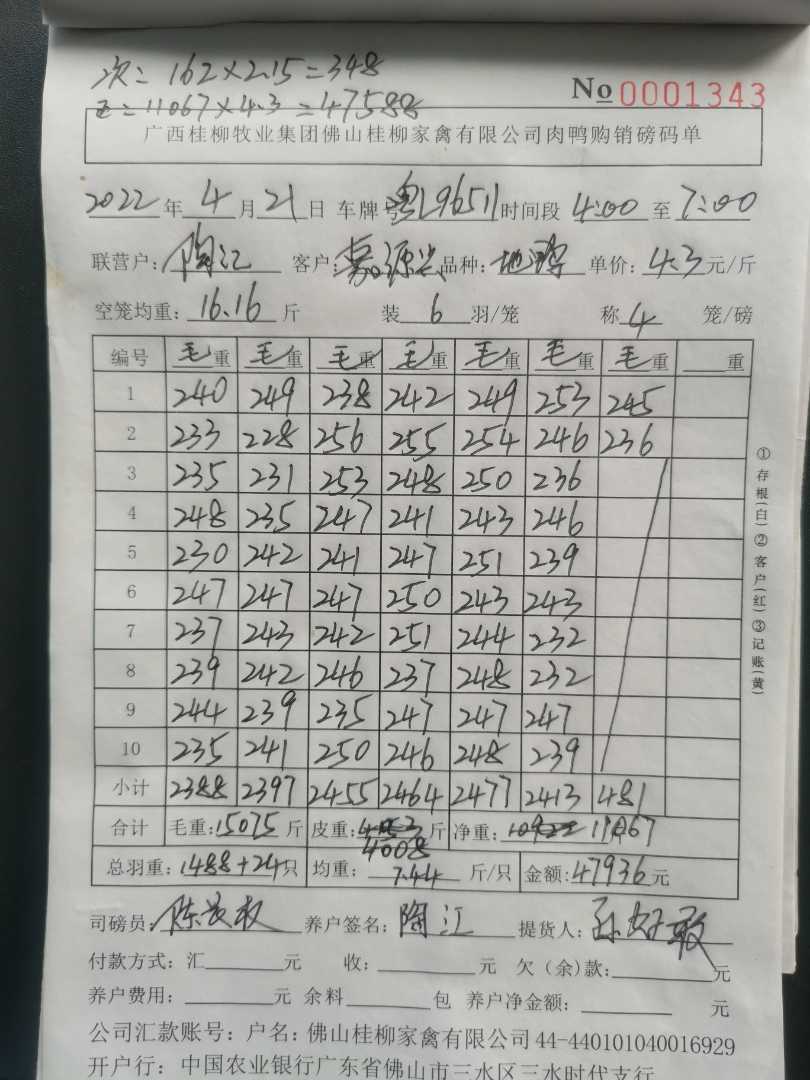 次= 162×2.15=348
正=11067×4.3=47588
No 0001343
广西桂柳牧业集团佛山桂柳家禽有限公司肉鸭购销磅码单
2022年4月21日 车牌号粤L96511时间段4:00至7:00
联营户:陶江 客户:嘉源兴品种:地鸭 单价:4.3元/斤
空笼均重:16.16斤 装6羽/笼 称4笼/磅
编号 毛重 毛重 毛重 毛重 毛重 毛重 毛重 重
1 240 249 238 242 249 253 245
2 233 228 256 255 254 246 236
3 235 231 253 248 250 236
4 248 235 247 241 243 246
5 230 242 241 247 251 239
6 247 247 247 250 243 243
7 237 243 242 251 244 232
8 239 242 246 237 248 232
9 244 239 235 247 247 247
10 235 241 250 246 248 239
小计 2388 2397 2455 2464 2477 2413 481
合计 毛重:15075斤 皮重:4008斤 净重:11067
总羽重:1488+24只 均重:7.44斤/只 金额:47936元
司磅员:陈 养户签名:陶江 提货人:孙
付款方式:汇 元 收: 元 欠(余)款: 元
养户费用: 元 余料 包 养户净金额: 元
公司汇款账号:户名:佛山桂柳家禽有限公司44-440101040016929
开户行:中国农业银行广东省佛山市三水区三水时代支行
①存根(白)②客户(红)③记账(黄)